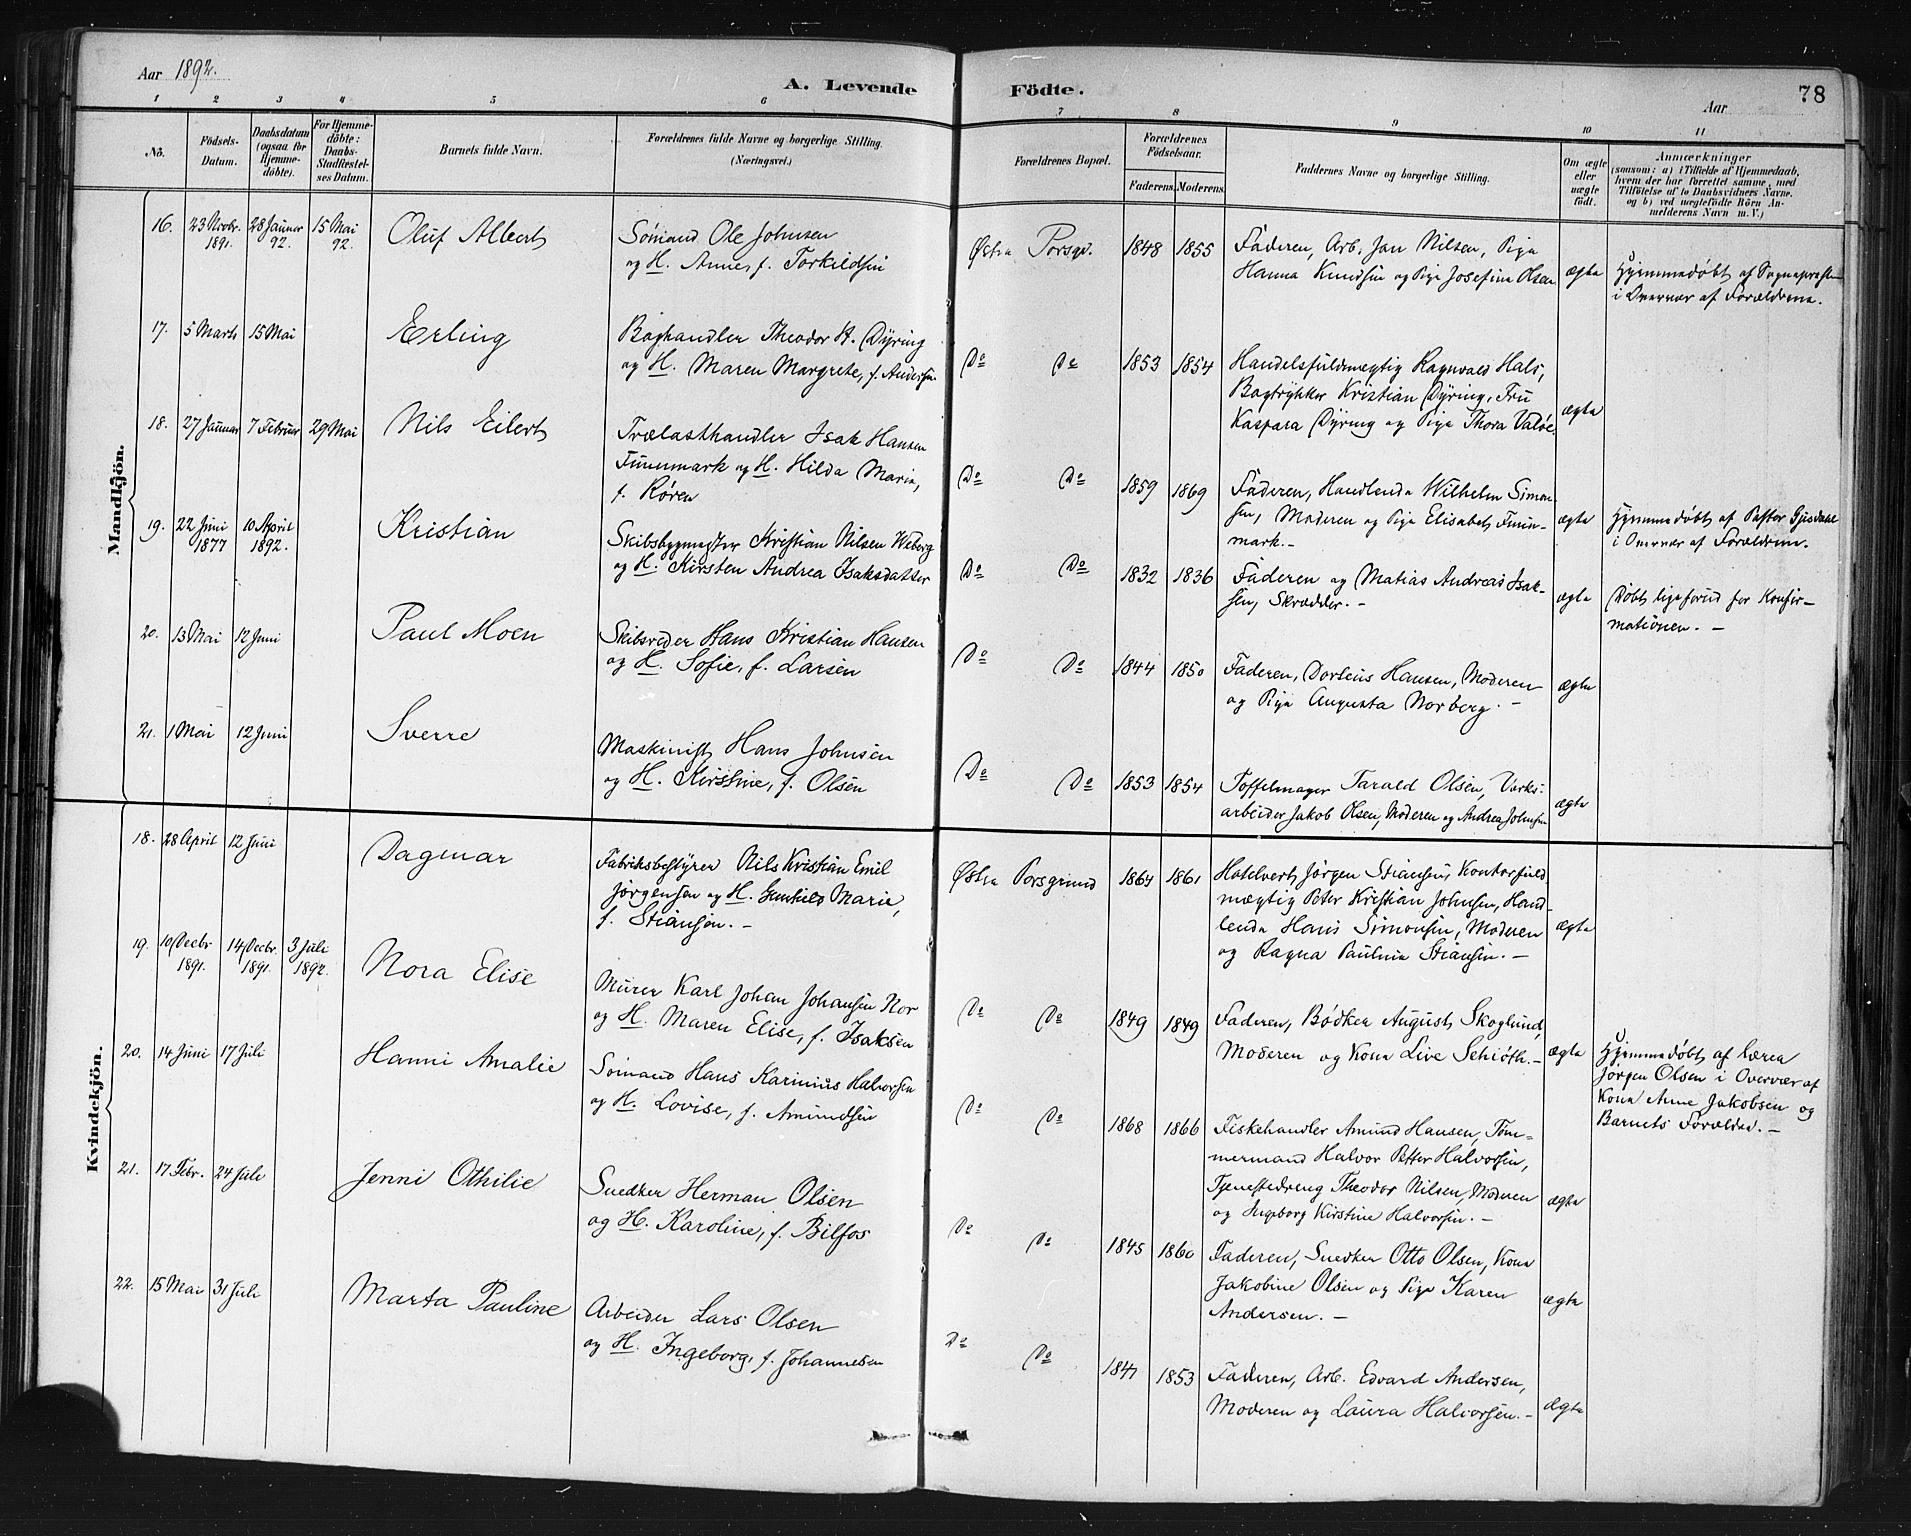 Aar 1892.
A. Levende Födte.
Aar
78
1 2 3 4 5 6 7 8 9 10 11
No.
Födsels-Datum.
Daabsdatum (ogsaa for Hjemme-döbte).
For Hjemme-döbte: Daabs-Stadfæstel-ses Datum.
Barnets fulde Navn.
Forældrenes fulde Navne og borgerlige Stilling. (Næringsvei.)
Forældrenes Bopæl.
Forældrenes Födselsaar.
Faderens. Moderens.
Faddernes Navne og borgerlige Stilling.
Om ægte eller uægte født.
Anmærkninger
(saasom: a) i Tilfælde af Hjemmedaab,
hvem der har forrettet samme, med
Tilföielse af to Daabsvidners Navne.
og b) ved uægtefödte Börn An-
melderens Navn m. V.)
Mandkjön.
16. 23 Novbr. 1891. 28 Januar 92. 15 Mai 92. Oluf Albert
Sömand Ole Johnsen
og H. Anne, f. Torkildsen
Østre Porsgr. 1848 1855
Faderen, Arb. Jan Nilsen, Pige
Hanna Knudsen og Pige Josefine Olsen
ægte
Hjemmedøbt af Sognepresten
i Overvær af Forældrene.
17. 5 Marts 15 Mai Erling
Boghandler Theodor H. Dyring
og H. Maren Margrete, f. Andersen
Do Do 1853 1854
Handelsfuldmægtig Ragnvald Hals,
Bogtrykker Kristian Dyring, Fru
Kaspara Dyring og Pige Thora Valöe.
ægte
18. 27 Januar 7 Februar 29 Mai Nils Eilert
Trælasthandler Isak Hansen
Funnmark og H. Hilda Marie,
f. Røren
Do Do 1859 1869
Faderen, Handlende Wilhelm Simon-
sen, Moderen og Pige Elisabet Funn-
mark.-
ægte
Hjemmedøbt af Pastor Gjesdahl
i Overvær af Forældrene.
19. 22 Juni 1877 10 April 1892. Kristian
Skibsbygmester Kristian Nilsen Weberg
og H. Kirsten Andrea Isaksdatter
Do Do 1832 1836
Faderen og Matias Andreas Isak-
sen, Skrædder.-
ægte
Døbt ligeforud for Konfir-
mationen.-
20. 13 Mai 12 Juni Paul Moen
Skibsreder Hans Kristian Hansen
og H. Sofie, f. Larsen
Do Do 1844 1850
Faderen, Dorteus Hansen, Moderen
og Pige Augusta Norberg.-
ægte
21. 1 Mai 12 Juni Sverre
Maskinist Hans Johnsen
og H. Kirstine, f. Olsen
Do Do 1853 1854
Toffelmager Tarald Olsen, Verks-
arbeider Jakob Olsen, Moderen og Andrea Johnsen
ægte
Kvindekjön.
18. 28 April 12 Juni Dagmar
Fabriksbestyrer Nils Kristian Emil
Jörgensen og H. Gunhild Marie,
f. Stiansen.-
Østre Porsgrund 1864 1861
Hotelvert Jörgen Stiansen, Kontorfuld-
mægtig Peter Kristian Johnsen, Hand-
lende Hans Simonsen, Moderen
og Ragna Pauline Stiansen.-
ægte
19. 10 Decbr 1891. 14 Decbr. 1891. 3 Juli 1892. Nora Elise
Murer Karl Johan Johansen Nor
og H. Maren Elise, f. Isaksen
Do Do 1849 1849
Faderen, Bødker August Skoglund,
Moderen og Kone Live Schiöth.-
ægte
Hjemmedøbt af Lærer
Jörgen Olsen i Overvær af
Kone Anne Jakobsen og
Barnets Forældre.-
20. 14 Juni 17 Juli Hanni Amalie
Sömand Hans Karinius Halvorsen
og H. Lovise, f. Amundsen
Do Do 1868 1866
Fiskehandler Amund Hansen, Töm-
mermand Halvor Petter Halvorsen,
Tjenestedreng Theodor Nilsen, Moderen
og Ingeborg Kirstine Halvorsen.-
ægte
21. 17 Febr. 24 Juli Jenni Othilie
Snedker Herman Olsen
og H. Karoline, f. Bilfos
Do Do 1845 1860
Faderen, Snedker Otto Olsen, Kone
Jakobine Olsen og Pige Karen
Andersen.-
ægte
22. 15 Mai 31 Juli Marta Pauline
Arbeider Lars Olsen
og H. Ingeborg, f. Johannesen
Do Do 1847 1853
Faderen, Arb. Edvard Andersen,
Moderen og Laura Halvorsen.-
Ægte